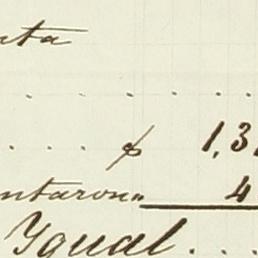 nta
. . . . . .
. . . . $ 1,3
ntaron „ 4
Igual . . .